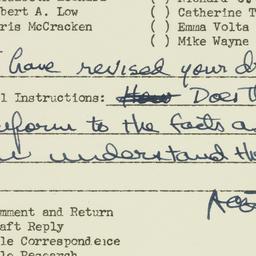 bert A. Low ( ) Catherine T
ris McCracken ( ) Emma Volta
( ) Mike Wayne
have revised your d
l Instructions: How Does th
form to the facts a
understand the
mment and Return
aft Reply
le Correspondence
le Research